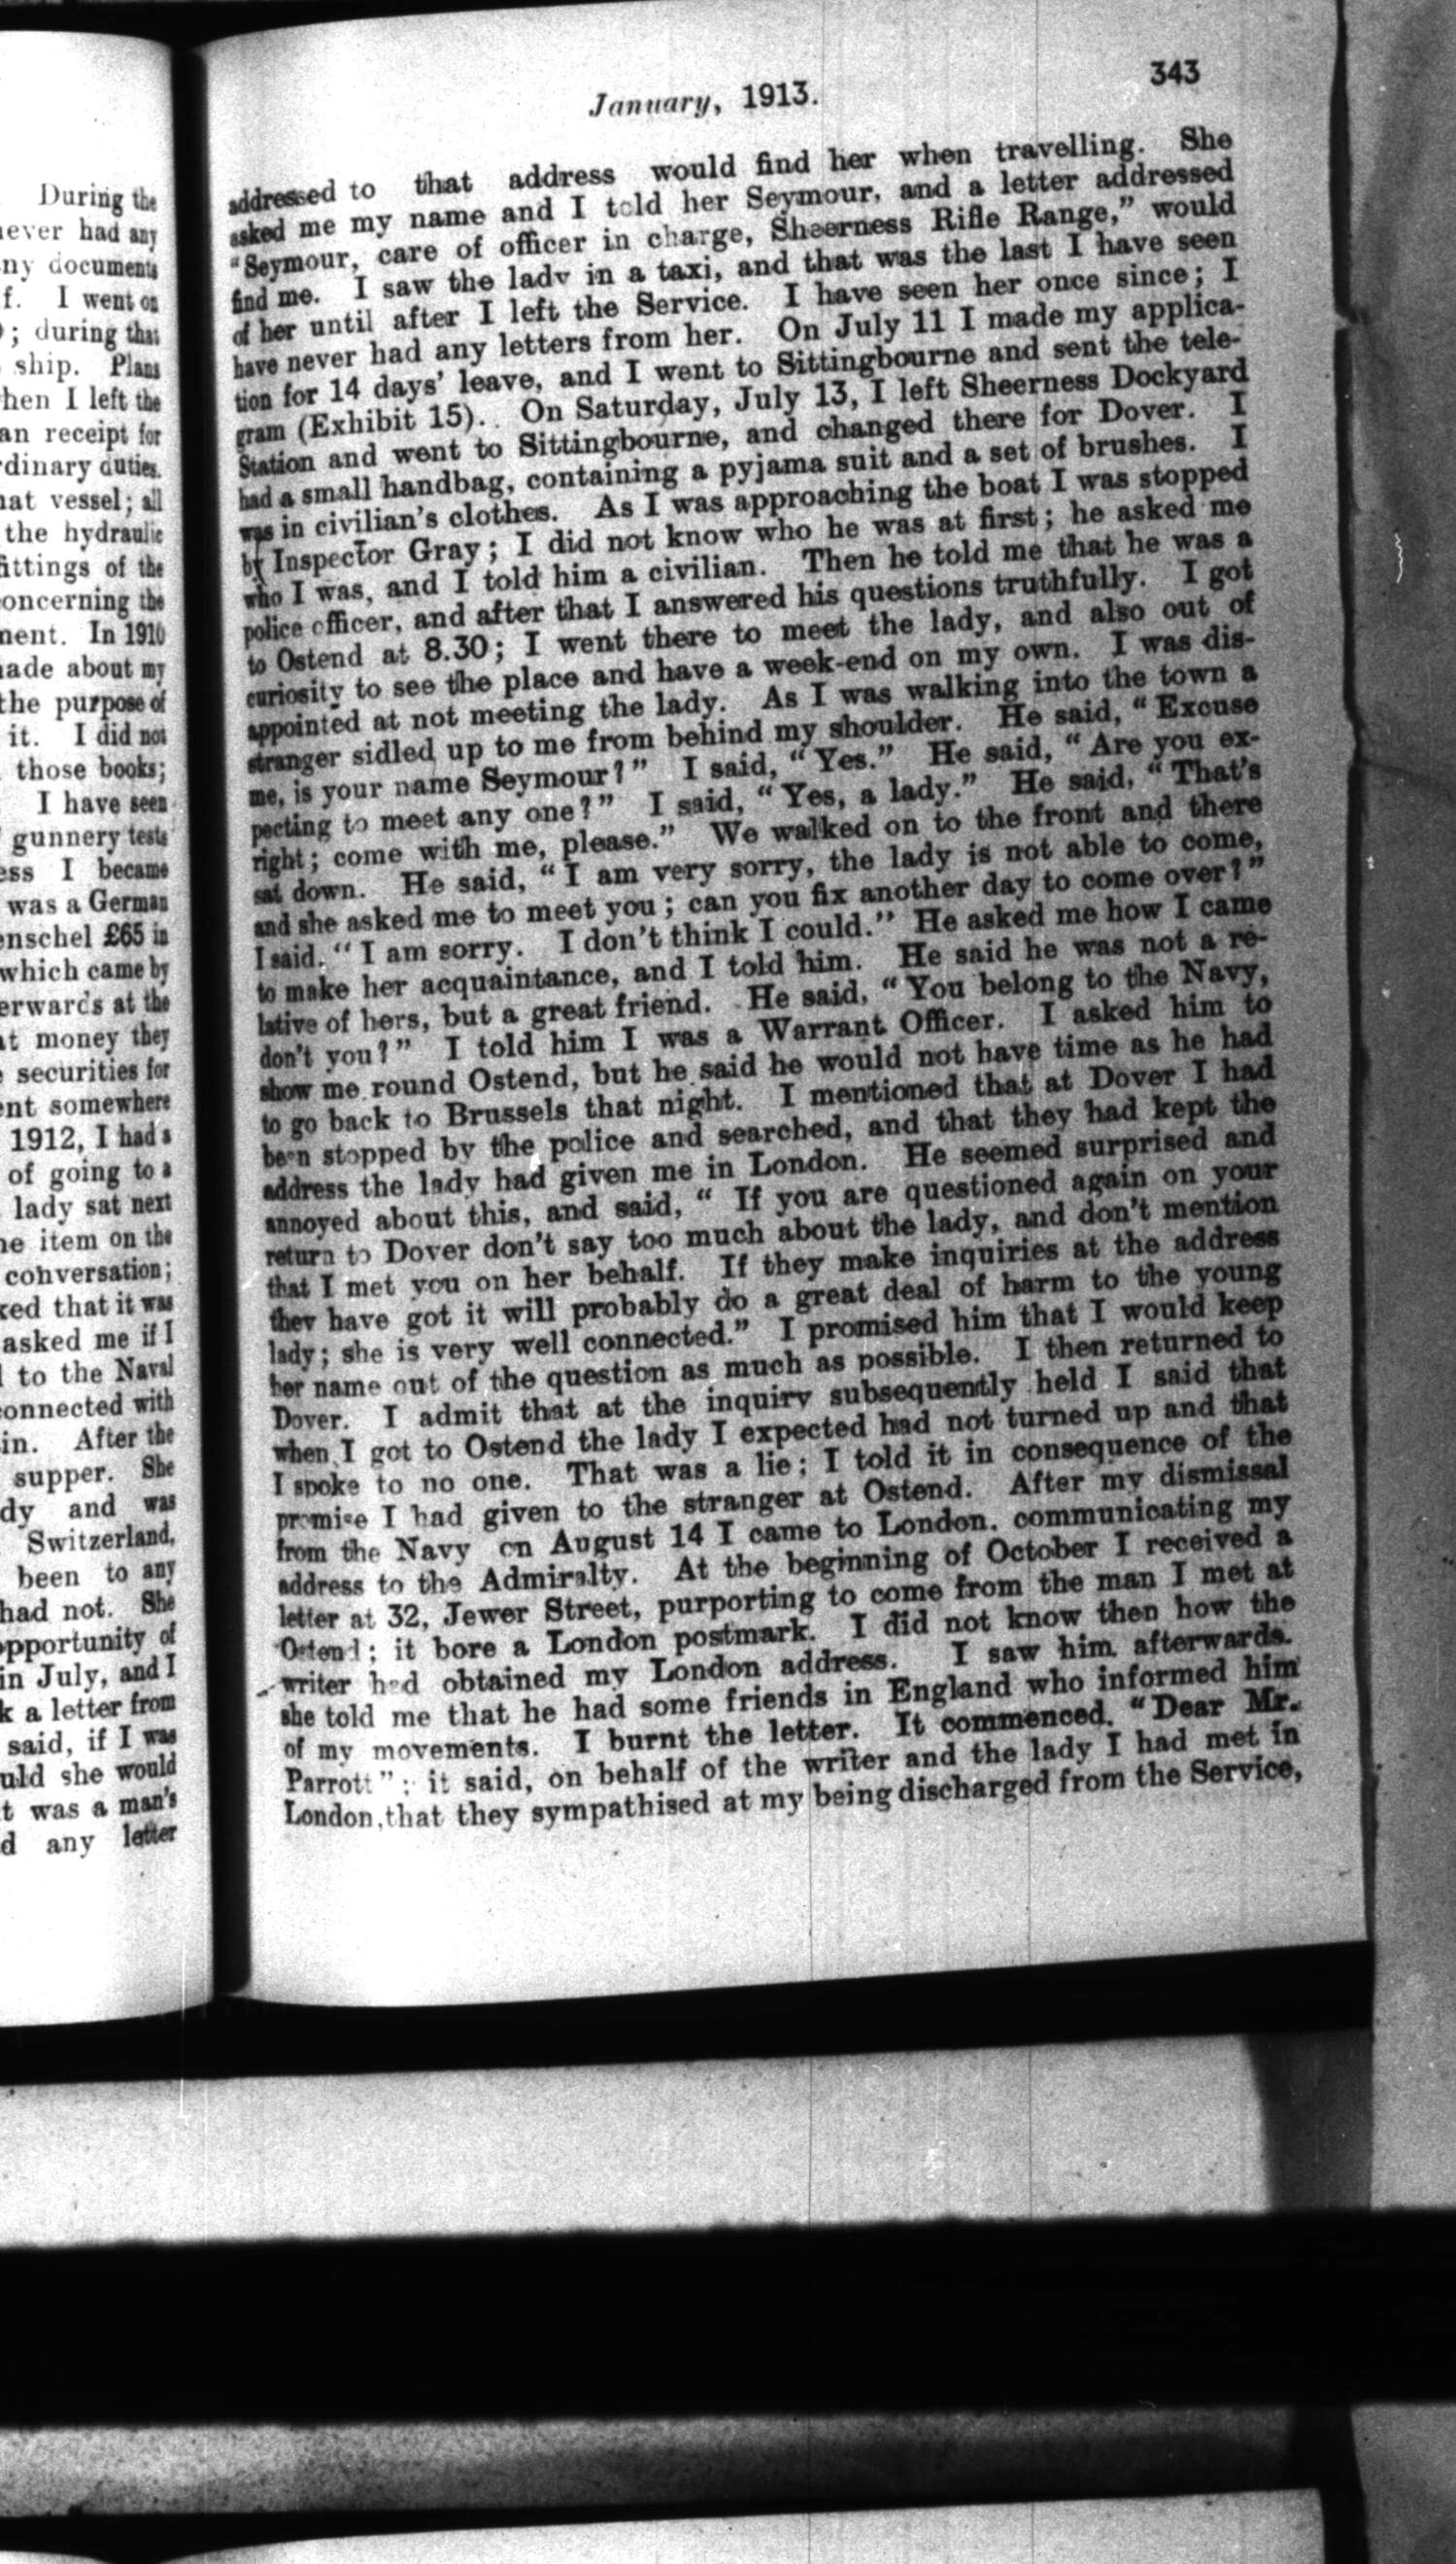 During the
ever had any
ny documents
f. I went on
; during that
ship. Plans
hen I left the
an receipt for
dinary duties.
at vessel; all
the hydraulic
fittings of the
oncerning the
ment. In 1910
ade about my
the purpose of
it. I did not
those books;
I have seen
gunnery tests
ess I became
was a German
enschel £65 in
which came by
erwards at the
at money they
securities for
ent somewhere
1912, I had a
of going to a
lady sat next
ne item on the
conversation;
ked that it was
asked me if I
to the Naval
onnected with
in. After the
supper. She
dy and was
Switzerland,
been to any
had not. She
opportunity of
in July, and I
k a letter from
said, if I was
uld she would
t was a man's
d any letter
January, 1913. 343
addressed to that address would find her when travelling. She
asked me my name and I told her Seymour, and a letter addressed
"Seymour, care of officer in charge, Sheerness Rifle Range," would
find me. I saw the lady in a taxi, and that was the last I have seen
of her until after I left the Service. I have seen her once since; I
have never had any letters from her. On July 11 I made my applica-
tion for 14 days' leave, and I went to Sittingbourne and sent the tele-
gram (Exhibit 15). On Saturday, July 13, I left Sheerness Dockyard
Station and went to Sittingbourne, and changed there for Dover. I
had a small handbag, containing a pyjama suit and a set of brushes. I
was in civilian's clothes. As I was approaching the boat I was stopped
by Inspector Gray; I did not know who he was at first; he asked me
who I was, and I told him a civilian. Then he told me that he was a
police officer, and after that I answered his questions truthfully. I got
to Ostend at 8.30; I went there to meet the lady, and also out of
curiosity to see the place and have a week-end on my own. I was dis-
appointed at not meeting the lady. As I was walking into the town a
stranger sidled up to me from behind my shoulder. He said, "Excuse
me, is your name Seymour?" I said, "Yes." He said, "Are you ex-
pecting to meet any one?" I said, "Yes, a lady." He said, "That's
right; come with me, please." We walked on to the front and there
sat down. He said, "I am very sorry, the lady is not able to come,
and she asked me to meet you; can you fix another day to come over?"
I said, "I am sorry. I don't think I could." He asked me how I came
to make her acquaintance, and I told him. He said he was not a re-
lative of hers, but a great friend. He said, "You belong to the Navy,
don't you?" I told him I was a Warrant Officer. I asked him to
show me round Ostend, but he said he would not have time as he had
to go back to Brussels that night. I mentioned that at Dover I had
been stopped by the police and searched, and that they had kept the
address the lady had given me in London. He seemed surprised and
annoyed about this, and said, "If you are questioned again on your
return to Dover don't say too much about the lady, and don't mention
that I met you on her behalf. If they make inquiries at the address
they have got it will probably do a great deal of harm to the young
lady; she is very well connected." I promised him that I would keep
her name out of the question as much as possible. I then returned to
Dover. I admit that at the inquiry subsequently held I said that
when I got to Ostend the lady I expected had not turned up and that
I spoke to no one. That was a lie; I told it in consequence of the
promise I had given to the stranger at Ostend. After my dismissal
from the Navy on August 14 I came to London, communicating my
address to the Admiralty. At the beginning of October I received a
letter at 32, Jewer Street, purporting to come from the man I met at
Ostend; it bore a London postmark. I did not know then how the
writer had obtained my London address. I saw him afterwards.
she told me that he had some friends in England who informed him
of my movements. I burnt the letter. It commenced, "Dear Mr.
Parrott"; it said, on behalf of the writer and the lady I had met in
London, that they sympathised at my being discharged from the Service,